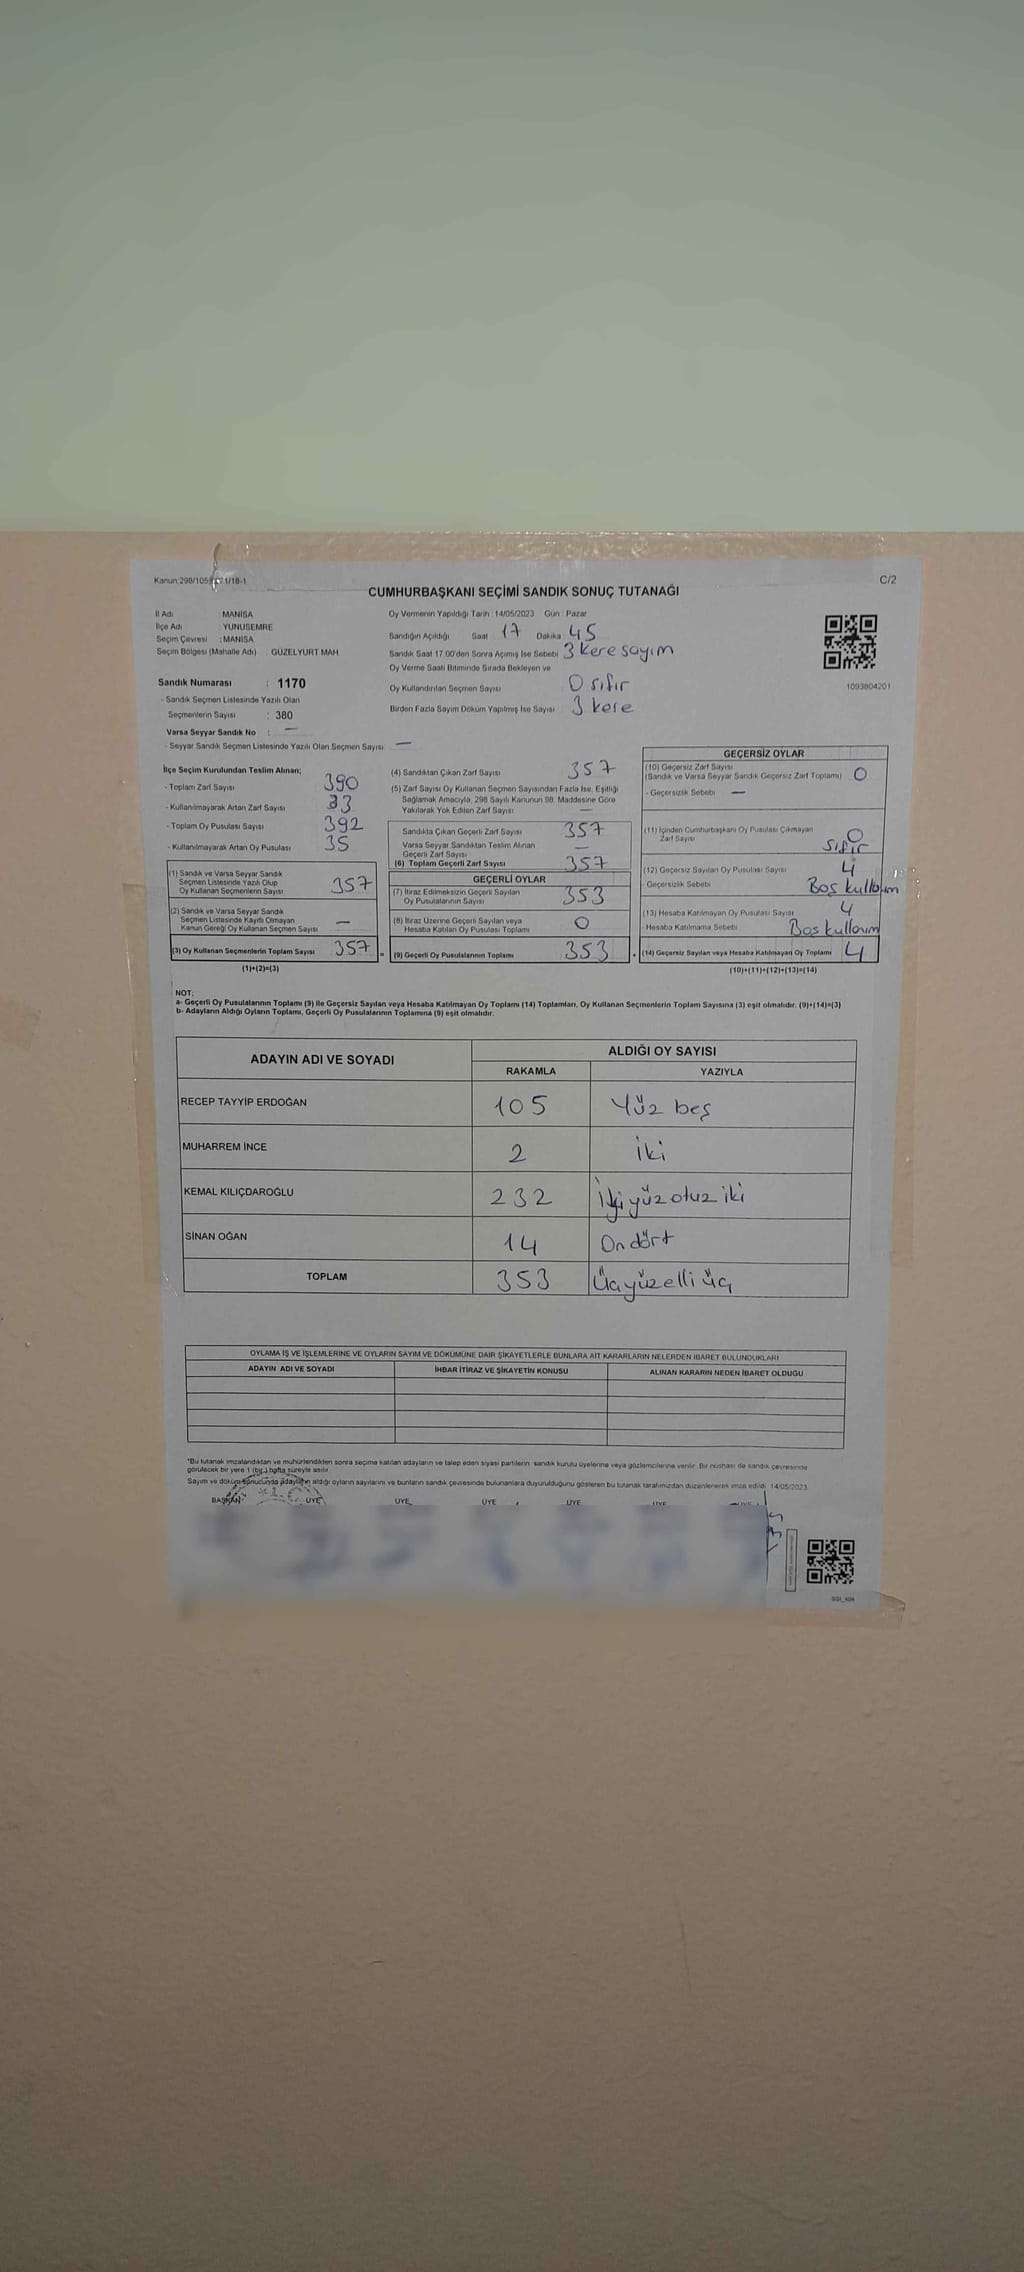 Kanun:298/105
C/2
CUMHURBAŞKANI SEÇİMİ SANDIK SONUÇ TUTANAĞI
İl Adı : MANİSA
İlçe Adı : YUNUSEMRE
Seçim Çevresi : MANİSA
Seçim Bölgesi (Mahalle Adı) : GÜZELYURT MAH
Sandık Numarası : 1170
- Sandık Seçmen Listesinde Yazılı Olan
Seçmenlerin Sayısı : 380
Varsa Seyyar Sandık No : —
- Seyyar Sandık Seçmen Listesinde Yazılı Olan Seçmen Sayısı —
Oy Vermenin Yapıldığı Tarih : 14/05/2023 Gün : Pazar
Sandığın Açıldığı Saat 17 Dakika 45
Sandık Saat 17.00'den Sonra Açımış İse Sebebi 3 kere sayım
Oy Verme Saati Bitiminde Sırada Bekleyen ve
Oy Kullandırılan Seçmen Sayısı 0 sıfır
Birden Fazla Sayım Döküm Yapılmış İse Sayısı 3 kere
1093804201
İlçe Seçim Kurulundan Teslim Alınan;
- Toplam Zarf Sayısı 390
- Kullanılmayarak Artan Zarf Sayısı 33
- Toplam Oy Pusulası Sayısı 392
- Kullanılmayarak Artan Oy Pusulası 35
(1) Sandık ve Varsa Seyyar Sandık
Seçmen Listesinde Yazılı Olup
Oy Kullanan Seçmenlerin Sayısı 357
(2) Sandık ve Varsa Seyyar Sandık
Seçmen Listesinde Kayıtlı Olmayan
Kanun Gereği Oy Kullanan Seçmen Sayısı —
(3) Oy Kullanan Seçmenlerin Toplam Sayısı 357
(1)+(2)=(3)
(4) Sandıktan Çıkan Zarf Sayısı 357
(5) Zarf Sayısı Oy Kullanan Seçmen Sayısından Fazla İse, Eşitliği
Sağlamak Amacıyla, 298 Sayılı Kanunun 98. Maddesine Göre
Yakılarak Yok Edilen Zarf Sayısı —
Sandıkta Çıkan Geçerli Zarf Sayısı 357
Varsa Seyyar Sandıktan Teslim Alınan
Geçerli Zarf Sayısı —
(6) Toplam Geçerli Zarf Sayısı 357
GEÇERLİ OYLAR
(7) İtiraz Edilmeksizin Geçerli Sayılan
Oy Pusulalarının Sayısı 353
(8) İtiraz Üzerine Geçerli Sayılan veya
Hesaba Katılan Oy Pusulası Toplamı 0
(9) Geçerli Oy Pusulalarının Toplamı 353
GEÇERSİZ OYLAR
(10) Geçersiz Zarf Sayısı
(Sandık ve Varsa Seyyar Sandık Geçersiz Zarf Toplamı) 0
- Geçersizlik Sebebi —
(11) İçinden Cumhurbaşkanı Oy Pusulası Çıkmayan
Zarf Sayısı 0 sıfır
(12) Geçersiz Sayılan Oy Pusulası Sayısı 4
- Geçersizlik Sebebi Boş kullanım
(13) Hesaba Katılmayan Oy Pusulası Sayısı 4
- Hesaba Katılmama Sebebi Boş kullanım
(14) Geçersiz Sayılan veya Hesaba Katılmayan Oy Toplamı 4
(10)+(11)+(12)+(13)=(14)
NOT:
a- Geçerli Oy Pusulalarının Toplamı (9) ile Geçersiz Sayılan veya Hesaba Katılmayan Oy Toplamı (14) Toplamları, Oy Kullanan Seçmenlerin Toplam Sayısına (3) eşit olmalıdır. (9)+(14)=(3)
b- Adayların Aldığı Oyların Toplamı, Geçerli Oy Pusulalarının Toplamına (9) eşit olmalıdır.
ADAYIN ADI VE SOYADI ALDIĞI OY SAYISI
RAKAMLA YAZIYLA
RECEP TAYYİP ERDOĞAN 105 Yüz beş
MUHARREM İNCE 2 iki
KEMAL KILIÇDAROĞLU 232 İkiyüz otuz iki
SİNAN OĞAN 14 On dört
TOPLAM 353 Üçyüzelli üç
OYLAMA İŞ VE İŞLEMLERİNE VE OYLARIN SAYIM VE DÖKÜMÜNE DAİR ŞİKAYETLERLE BUNLARA AİT KARARLARIN NELERDEN İBARET BULUNDUKLARI
ADAYIN ADI VE SOYADI İHBAR İTİRAZ VE ŞİKAYETİN KONUSU ALINAN KARARIN NEDEN İBARET OLDUĞU
*Bu tutanak imzalandıktan ve mühürlendikten sonra seçime katılan adayların ve talep eden siyasi partilerin sandık kurulu üyelerine veya gözlemcilerine verilir. Bir nüshası da sandık çevresinde
görülecek bir yere 1 (bir) hafta süreyle asılır.
Sayım ve döküm sonucunda adayların aldığı oyların sayılarını ve bunların sandık çevresinde bulunanlara duyurulduğunu gösteren bu tutanak tarafımızdan düzenlenerek imza edildi. 14/05/2023
BAŞKAN ÜYE ÜYE ÜYE ÜYE ÜYE ÜYE